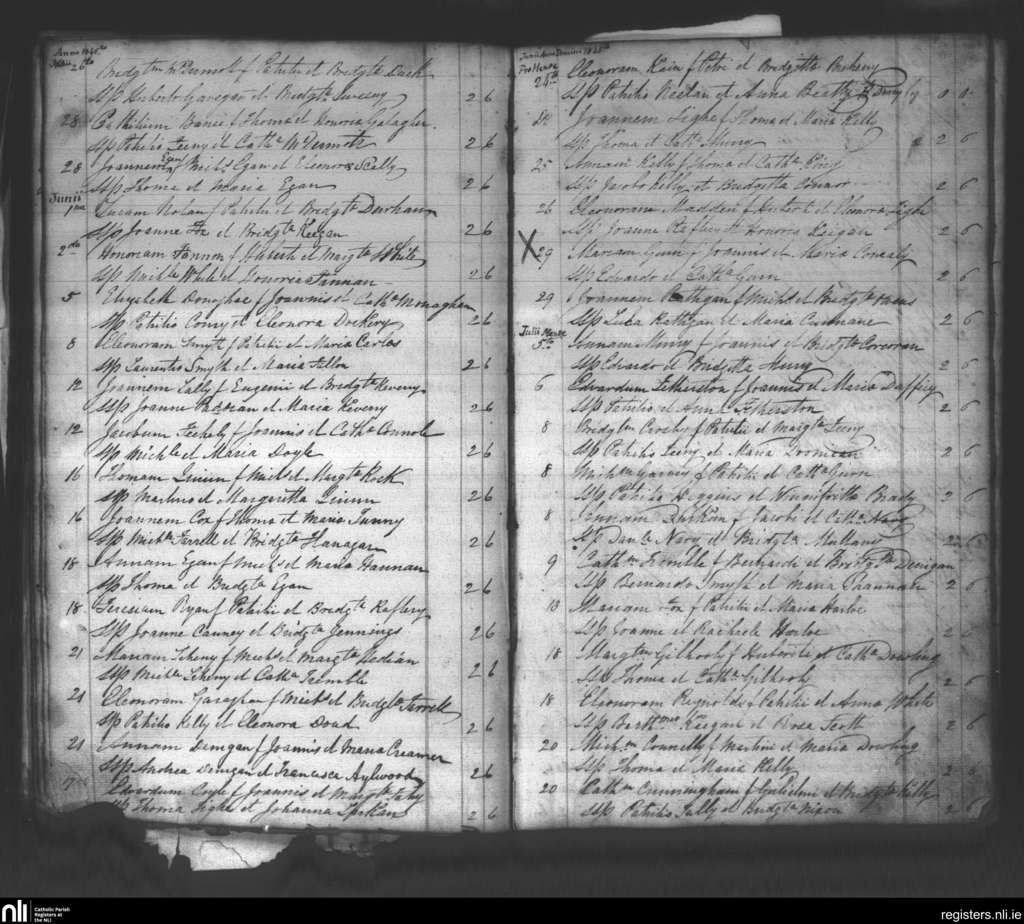 Anno 1845
26
Bridgtm McDermot f Patritii et Bridgtæ Duck
Ssp Huberto Gavegan et Bridgta Sweeny 2 6
28 Thomæ et Honora Galagher
Ssp Patritio Feeny et Catha McDermott 2 6
28 Joannem Egan f Michs Egan et Elenora Scally
Ssp Thoma et Maria Egan 2 6
Junii
1ma Susam Nolan f Patritii et Bridgtæ Durhan
Ssp Joanne Fox et Bridgta Keegan 2 6
2da Honoriam Fannon f Huberti et Margtæ White
Ssp Michle White et Honoria Fannan 2 6
5 Elizabeth Donoghoe f Joannis et Cathæ Monaghan
Ssp Patritio Conry et Eleonora Dockery 2 6
8 Eleonoram Smyth f Patritii et Maria Carlos
Ssp Laurentio Smyth et Maria Fallon 2 6
12 Joannem Lally f Eugenii et Bridgtæ Keveny
Ssp Joanne et Maria Keveny 2 6
12 Jacobum Feehely f Joannis et Cathæ Connole
Ssp Michle et Maria Doyle 2 6
16 Thomam Quinn f Michs et Margtæ Rock
Ssp Martino et Margaritta Quinn 2 6
16 Joannem Cox f Thoma et Maria Tunny
Ssp Michle Farrell et Bridgta Flanagan 2 6
18 Annam Egan f Michs et Maria Hannan
Ssp Thoma et Bridgta Egan 2 6
18 Teresiam Ryan f Patritii et Bridgtæ Raftery
Ssp Joanne Canney et Bridgta Jennings 2 6
21 Mariam Feheny f Michs et Margtæ Hedian
Ssp Michle Feheny et Catha Tremble 2 6
21 Eleonoram Garaghan f Michs et Bridgtæ Farrell
Ssp Patritio Kelly et Eleonora Dowd 2 6
21 Annam Denigan f Joannis et Maria Creamer
Ssp Andrea Denigan et Francisca Aylwood 2 6
Edvardum Coyle f Joannis et Margtæ
Ssp Thoma Fighe et Johanna 2 6
Junii Anno Domini 1845
Pro Mense
24th Eleonoram Kain f Petri et Bridgitta
Ssp Patritio Neelan et Anna 0 0
24 Joannem Lighe f Thoma et Maria Kelly
Ssp Thoma et Catha Murry 2 6
25 Annam Kelly f Thoma et Cathæ
Ssp Jacobo Kelly et Bridgitta Connor 2 6
26 Eleonoram Madden f Huberti et Elenora Lighe
Ssp Joanne Raftery et Honora Keigan 2 6
X 29 Mariam Gunn f Joannis et Maria Conealy
Ssp Edvardo et Catha Gunn 2 6
29 Joannem Rathgan f Michs et Bridgtæ
Ssp Luca Rathgan et Maria Cunnane 2 6
Julii Mense
5th Annam Murry f Joannis et Bridgtæ Corcoran
Ssp Edvardo et Bridgitta Murry 2 6
6 Edvardum Fetherston f Joannis et Maria Duffiy
Ssp Patritio et Anna Fetherston 2 6
8 Bridgtm Crosby f Patritii et Margtæ Feeny
Ssp Patritio Feeny et Maria Noonan 2 6
8 Michm Garvey f Patritii et Catha Gunn
Ssp Patritio Higgins et Winnifritta Brady 2 6
8 Annam Durkan f Jacobi et Cathæ Navy
Ssp Danle Navy et Bridgta Mullany 2 6
9 Cathm Tremble f Bernardi et Bridgtæ Denigan
Ssp Bernardo Smyth et Maria Shannon 2 6
13 Mariam Fox f Patritii et Maria Harloe
Ssp Joanne et Rachaele Harloe 2 6
18 Margtm Gilhooly f Huberti et Cathæ Dowling
Ssp Thoma et Catha Gilhooly 2 6
18 Eleonoram Reynolds f Patritii et Anna White
Ssp Barthmeo Keegan et Rosa Scott 2 6
20 Michm Connelly f Martini et Maria Dowling
Ssp Thoma et Maria Kelly 2 6
20 Cathm Cunningham f Gulielmi et Bridgtæ Kilth
Ssp Patritio Lally et Bridgta Nixon 2 6
nli
Catholic Parish
Registers at
the NLI
registers.nli.ie